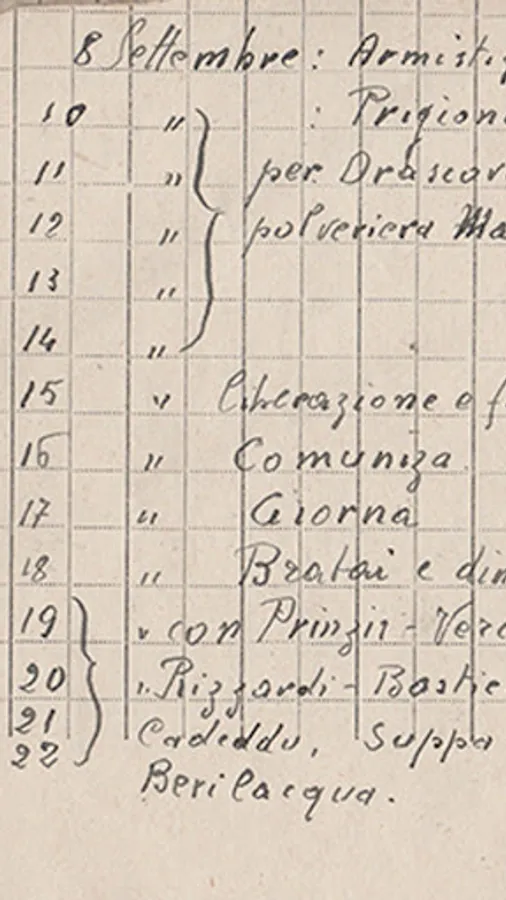 8 Settembre : Armisti
10 " : Prigion
11 " per Drascov
12 " polveriera Ma
13 "
14 "
15 " liberazione e f
16 " Comuniza
17 " Giorna
18 " Bratai e dim
19 " con Prinzii - Verc
20 " Rizzardi - Bastie
21 Cadeddu, Suppa
22
Berilacqua.